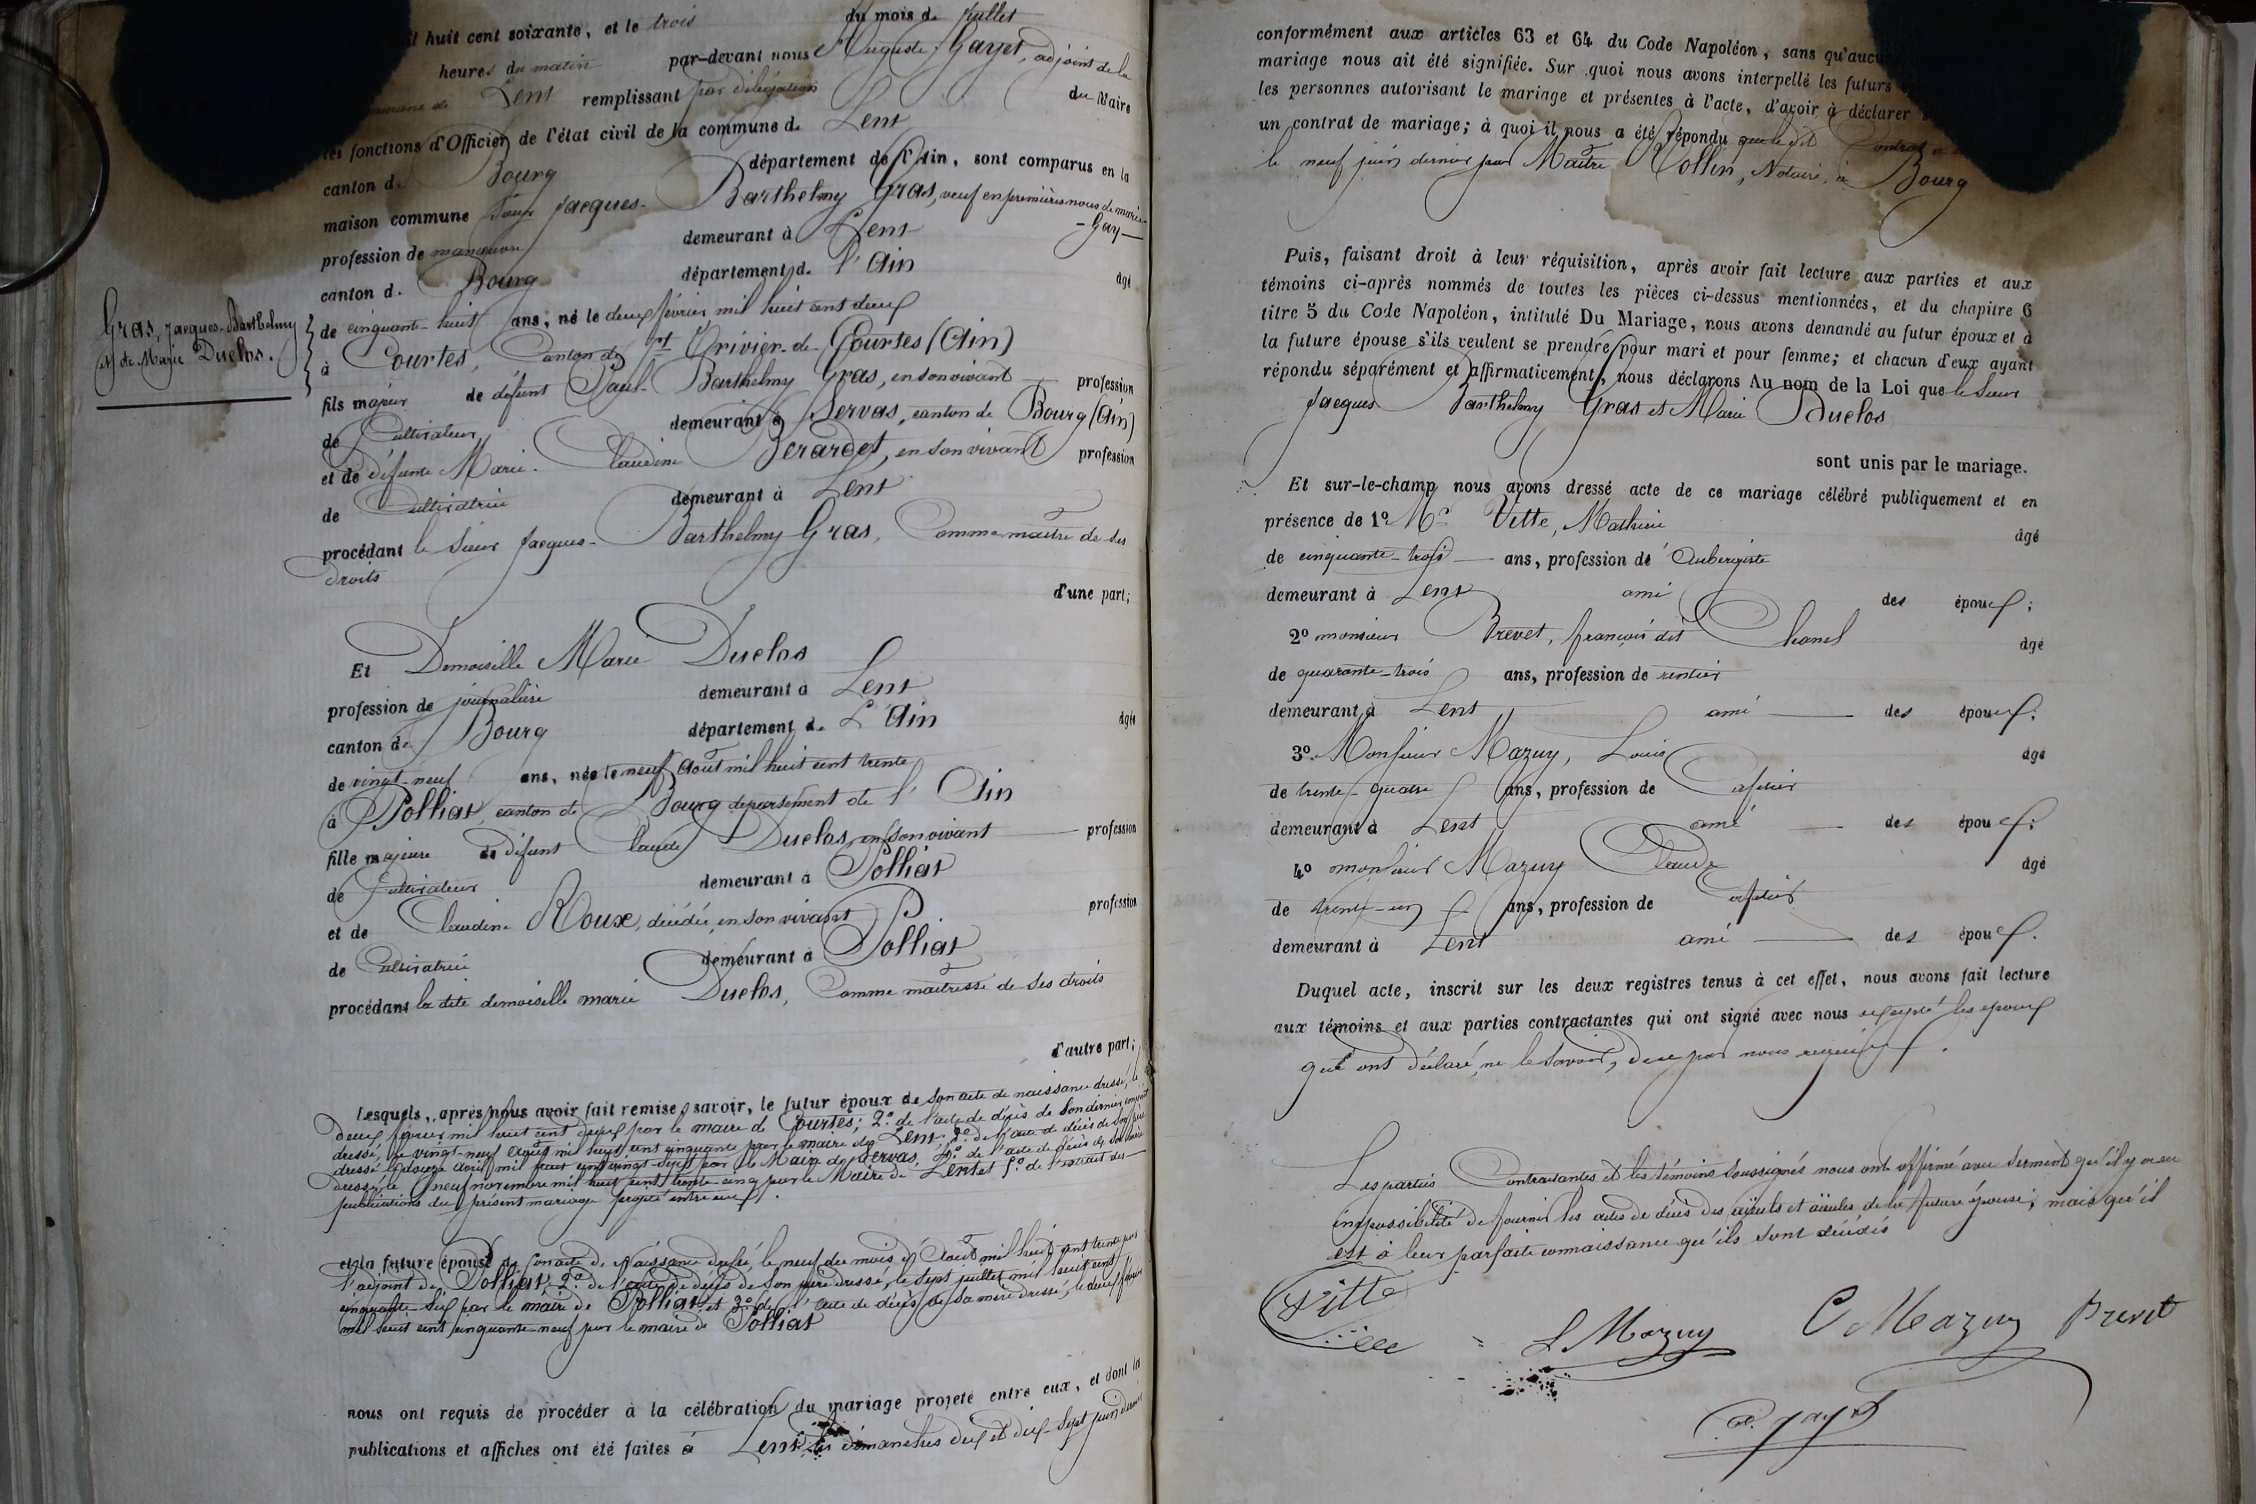 il huit cent soixante, et le trois du mois de Juillet
heures du matin par-devant nous Auguste Gayet, adjoint de la
commune de Lent remplissant par délégation du Maire
les fonctions d'Officier de l'état civil de la commune de Lent
canton de Bourg département de l'Ain, sont comparus en la
maison commune Sieur Jacques-Barthelmy Gras, veuf en premières noces de marie
Gay
profession de manoeuvre demeurant à Lent
canton de Bourg département de l'Ain âgé
Gras, Jacques-Barthelmy
et de Marie Duclos.
de cinquante-huit ans, né le deux février mil huit cent deux
à Courtes, Canton de St Trivier-de-Courtes (Ain)
fils majeur de défunt Paul-Barthelmy Gras, en son vivant profession
de Cultivateur demeurant à Servas, canton de Bourg (Ain)
et de défunte Marie-Claudine Berardet, en son vivant profession
de Cultivatrice demeurant à Lent
procédant le Sieur Jacques-Barthelmy Gras, Comme maître de ses
droits
d'une part;
Et Demoiselle Marie Duclos
profession de journalière demeurant à Lent
canton de Bourg département de L'Ain âgée
de vingt-neuf ans, née le neuf Août mil huit cent trente
à Polliat, canton de Bourg département de l'Ain
fille majeure de défunt Claude Duclos, en son vivant profession
de Cultivateur demeurant à Polliat
et de Claudine Roux, décédée, en son vivant profession
de Cultivatrice demeurant à Polliat
procédant la dite demoiselle marie Duclos, Comme maîtresse de ses droits
d'autre part;
Lesquels, après nous avoir fait remise, savoir, le futur époux de son acte de naissance dressé, le
deux février mil huit cent deux par le maire de Courtes; 2.° de l'acte de décès de son dernier conjoint
dressé, le vingt-neuf Août mil huit cent cinquante par le maire de Lent, 3.° de l'acte de décès de son père
dressé le douze avril mil huit cent vingt-sept par le Maire de Servas, 4.° de l'acte de décès de sa mère
dressé, le neuf novembre mil huit cent trente-cinq par le Maire de Lent et 5.° de l'extrait des
publications du présent mariage projeté entre eux.
et la future épouse de son acte de Naissance dressé, le neuf du mois d'Août mil huit cent trente par
l'adjoint de Polliat, 2.° de l'acte de décès de son père dressé, le sept juillet mil huit cent
cinquante-six par le maire de Polliat et 3.° de l'acte de décès de sa mère dressé, le deux février
mil huit cent cinquante-neuf par le maire de Polliat
nous ont requis de procéder à la célébration du mariage projeté entre eux, et dont la
publications et affiches ont été faites à Lent les dimanches dix et dix-sept juin dernier
conformément aux articles 63 et 64 du Code Napoléon, sans qu'aucu
mariage nous ait été signifiée. Sur quoi nous avons interpellé les futurs
les personnes autorisant le mariage et présentes à l'acte, d'avoir à déclarer
un contrat de mariage; à quoi il nous a été répondu que le dit Contrat a
le neuf juin dernier par Maître Rollin, Notaire, à Bourg
Puis, faisant droit à leur réquisition, après avoir fait lecture aux parties et aux
témoins ci-après nommés de toutes les pièces ci-dessus mentionnées, et du chapitre 6
titre 5 du Code Napoléon, intitulé Du Mariage, nous avons demandé au futur époux et à
la future épouse s'ils veulent se prendre pour mari et pour femme; et chacun d'eux ayant
répondu séparément et affirmativement, nous déclarons Au nom de la Loi que le Sieur
Jacques Barthelmy Gras et Marie Duclos
sont unis par le mariage.
Et sur-le-champ nous avons dressé acte de ce mariage célébré publiquement et en
présence de 1° Mr Vitte, Mathieu âgé
de cinquante-trois ans, profession de Aubergiste
demeurant à Lent ami des époux;
2° monsieur Brevet, françois dit Chanel âgé
de quarante-trois ans, profession de rentier
demeurant à Lent ami des époux;
3° Monsieur Mazuy, Louis âgé
de trente-quatre ans, profession de Cafetier
demeurant à Lent ami des époux;
4° monsieur Mazuy Claude âgé
de trente-un ans, profession de Cafetier
demeurant à Lent ami des époux.
Duquel acte, inscrit sur les deux registres tenus à cet effet, nous avons fait lecture
aux témoins et aux parties contractantes qui ont signé avec nous excepté les époux
qui ont déclaré, ne le savoir, de ce par nous requis.
Les parties Contractantes et les témoins Soussignés nous ont affirmé avec serment qu'il y a eu
impossibilité de fournir les actes de décès des aïeuls et aïeules de la future épouse, mais qu'il
est à leur parfaite connaissance qu'ils sont décédés
Vitte
L Mazuy
C Mazuy
Brevet
a. gayet